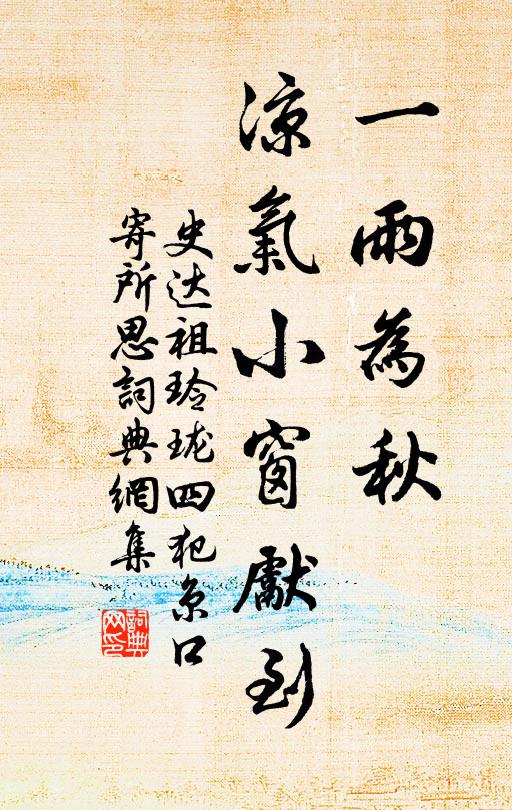 一雨為秋
涼氣小窗獻到
史达祖玲珑四犯京口
寄所思詞典網集
詞典
网印